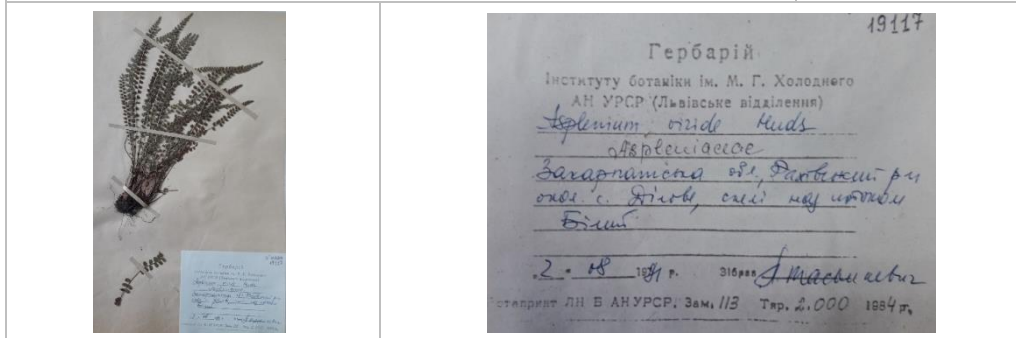 19117
Гербарій
Інституту ботаніки ім. М. Г. Холодного
АН УРСР (Львівське відділення)
Asplenium viride Huds
Aspleniaceae
Закарпатська обл., Рахівський р-н
окол. с. Ділове, скелі над потоком
Білий
2. 08 1991 р. Зібрав Л Тасєнкевич
ЛН Б АН УРСР. Зам. 113 Тир. 2.000 1984 р.